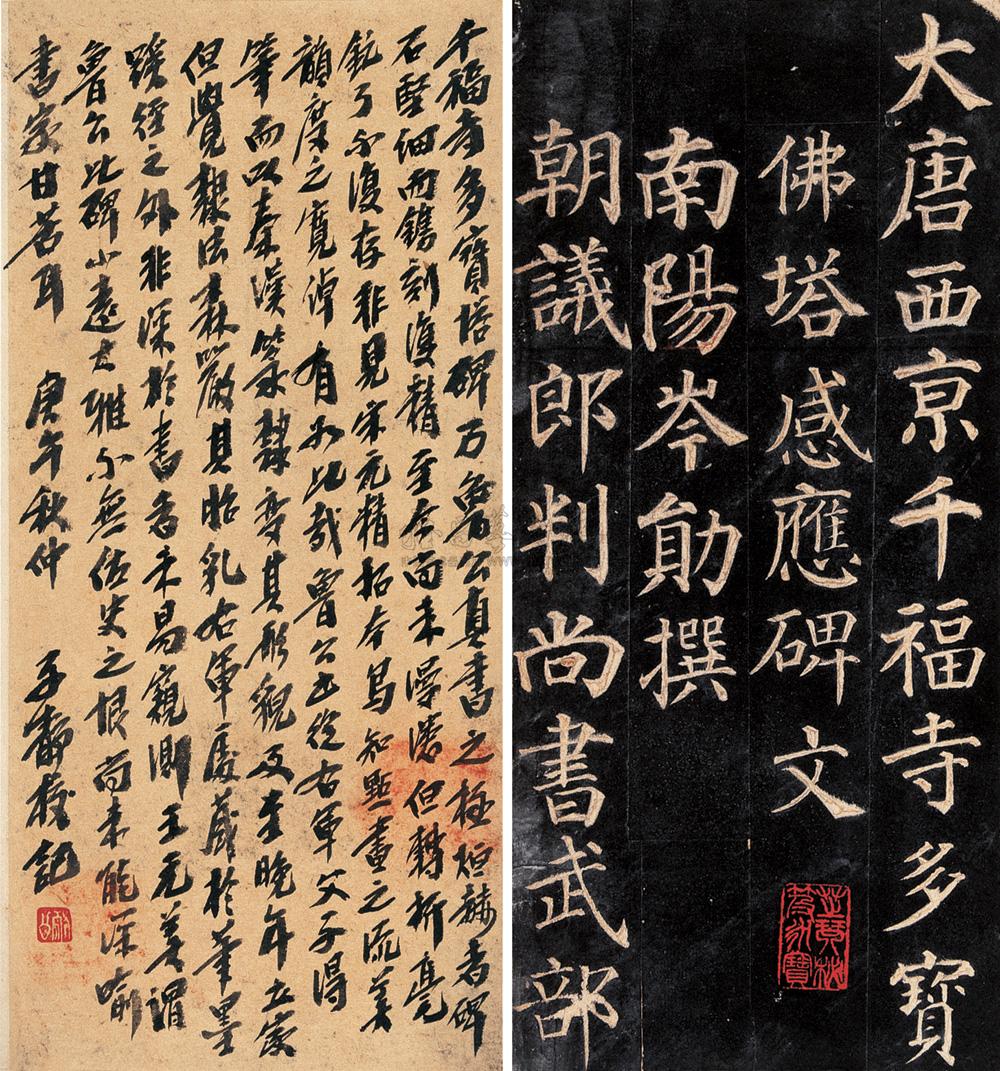 大唐西京千福寺多寳
佛塔感應碑文
南陽岑勛撰
朝議郎判尚書武部
千福寺多寶塔碑乃魯公真書之極烜赫者碑
石堅細而鐫刻復精至今尚未漫漶但轉折毫
鋩了不復存非見宋元精拓本烏知點畫之流美
韻度之寬綽有如此哉魯公書從右軍父子得
筆而以秦漢篆隸變其形貌及至晚年立家
但覺槼法森嚴其胎乳右軍處蔵於筆墨
蹊徑之外非深於書者未易窺測王元美謂
魯公此碑小遠大雅不無佐史之恨尚未能深喻
書家甘苦耳 庚午秋仲 記